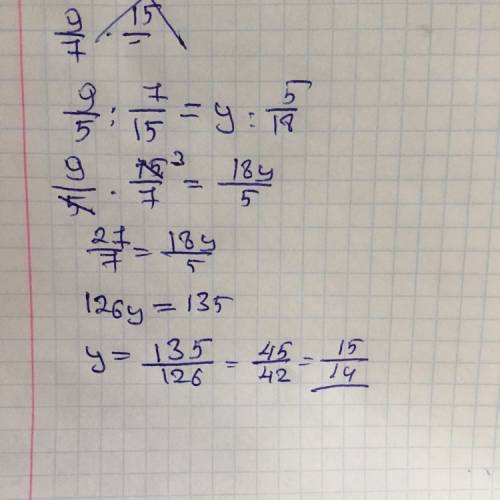 9/7 · 15/
9/5 : 7/15 = y : 5/18
9/5 · 15/7 3 = 18y/5
27/7 = 18y/5
126y = 135
y = 135/126 = 45/42 = 15/14